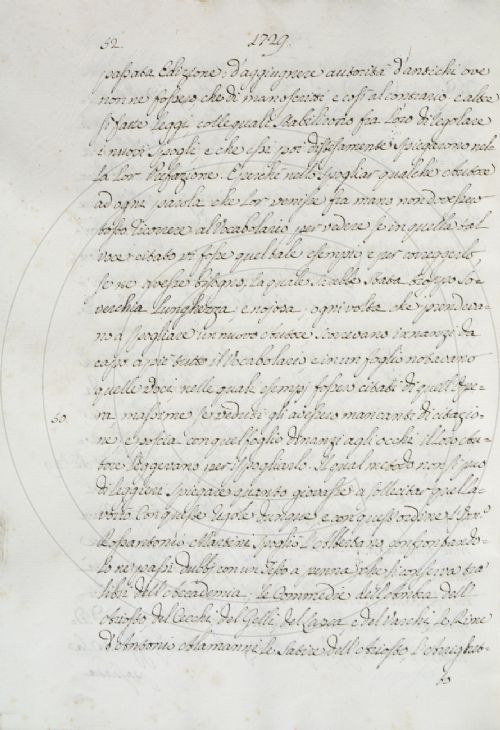 52. 1729.
passata Edizione; d'aggiugnere autorità d'antichi ove
non ne fossero che di manoscritti e così al contrario e altre
sì fatte Leggi colle quali stabilirono fra loro di regolare
i nuovi spogli, e che essi poi distesamente spiegarono nel-
la lor Prefazione. E perchè nello spogliar qualche Autore
ad ogni parola che lor venisse fra mano non dovessero
tosto ricorrere al Vocabolario per vedere se in quella tal
voce citato vi fosse quel tale esempio, e per correggerlo
se ne avesse bisogno, la quale sarebbe stata troppo so-
verchia lunghezza, e nojosa; ogni volta che prendeva-
no a spogliare un nuovo Autore scorrevano innanzi da
capo a piè tutto il Vocabolario, e in un foglio notavano
quelle voci nelle quali esempj fossero citati di quell'Ope-
ra massime se veduti gli avessero mancanti di citazio-
50. ne e poscia con quel foglio dinanzi agli occhi il loro Au-
tore leggevano per ispogliarlo. Il qual metodo non si può
di leggieri spiegare quanto giovasse a sollecitar quel la-
voro. Con queste regole dunque, e con quest'ordine il Sr
Rosantonio Martini spogliò l'Albertano, confrontando-
lo ne' passi dubbi con un Testo a penna, che si conserva tra'
libri dell'Accademia; le Commedie dell'Ambra, dell'
Ariosto, del Cecchi, del Gelli, del Lasca, e del Varchi, le Rime
d'Antonio Alamanni, le Satire dell'Ariosto, l'Arrighet-
to